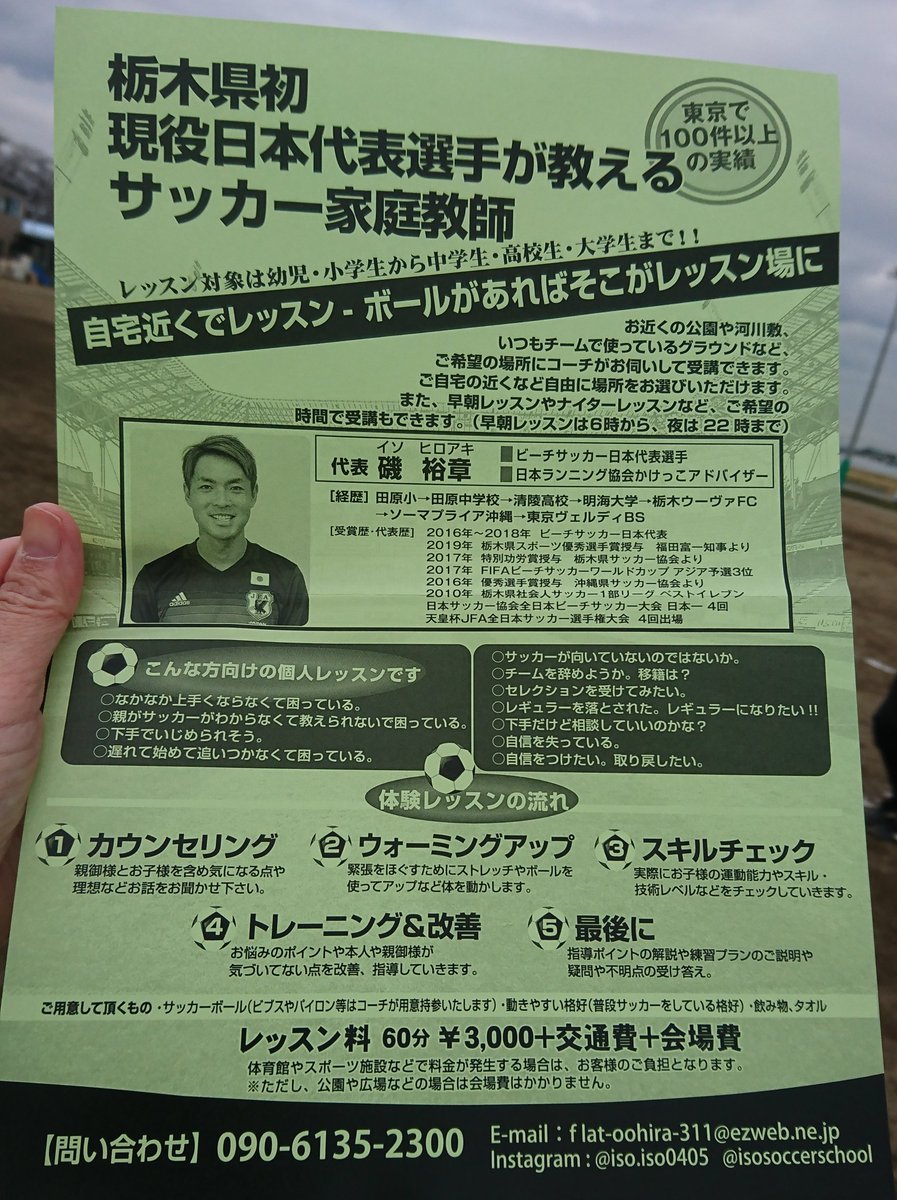 栃木県初
現役日本代表選手が教える
サッカー家庭教師
東京で
100件以上
の実績
レッスン対象は幼児・小学生から中学生・高校生・大学生まで！！
自宅近くでレッスン - ボールがあればそこがレッスン場に
お近くの公園や河川敷、
いつもチームで使っているグラウンドなど、
ご希望の場所にコーチがお伺いして受講できます。
ご自宅の近くなど自由に場所をお選びいただけます。
また、早朝レッスンやナイターレッスンなど、ご希望の
時間で受講もできます。（早朝レッスンは6時から、夜は22時まで）
イソ ヒロアキ
代表 磯 裕章
■ビーチサッカー日本代表選手
■日本ランニング協会かけっこアドバイザー
［経歴］田原小→田原中学校→清陵高校→明海大学→栃木ウーヴァFC
→ソーマプライア沖縄→東京ヴェルディBS
［受賞歴・代表歴］ 2016年～2018年 ビーチサッカー日本代表
2019年 栃木県スポーツ優秀選手賞授与 福田富一知事より
2017年 特別功労賞授与 栃木県サッカー協会より
2017年 FIFAビーチサッカーワールドカップ アジア予選3位
2016年 優秀選手賞授与 沖縄県サッカー協会より
2010年 栃木県社会人サッカー1部リーグ ベストイレブン
日本サッカー協会全日本ビーチサッカー大会 日本一 4回
天皇杯JFA全日本サッカー選手権大会 4回出場
adidas
JFA
こんな方向けの個人レッスンです
○なかなか上手くならなくて困っている。
○親がサッカーがわからなくて教えられないで困っている。
○下手でいじめられそう。
○遅れて始めて追いつかなくて困っている。
○サッカーが向いていないのではないか。
○チームを辞めようか。移籍は？
○セレクションを受けてみたい。
○レギュラーを落とされた。レギュラーになりたい!!
○下手だけど相談していいのかな？
○自信を失っている。
○自信をつけたい。取り戻したい。
体験レッスンの流れ
1 カウンセリング
親御様とお子様を含め気になる点や
理想などお話をお聞かせ下さい。
2 ウォーミングアップ
緊張をほぐすためにストレッチやボールを
使ってアップなど体を動かします。
3 スキルチェック
実際にお子様の運動能力やスキル・
技術レベルなどをチェックしていきます。
4 トレーニング&改善
お悩みのポイントや本人や親御様が
気づいてない点を改善、指導していきます。
5 最後に
指導ポイントの解説や練習プランのご説明や
疑問や不明点の受け答え。
ご用意して頂くもの ・サッカーボール（ビブスやパイロン等はコーチが用意持参いたします）・動きやすい格好（普段サッカーをしている格好）・飲み物、タオル
レッスン料 60分 ￥3,000＋交通費＋会場費
体育館やスポーツ施設などで料金が発生する場合は、お客様のご負担となります。
※ただし、公園や広場などの場合は会場費はかかりません。
【問い合わせ】090-6135-2300
E-mail：flat-oohira-311@ezweb.ne.jp
Instagram：@iso.iso0405 @isosoccerschool